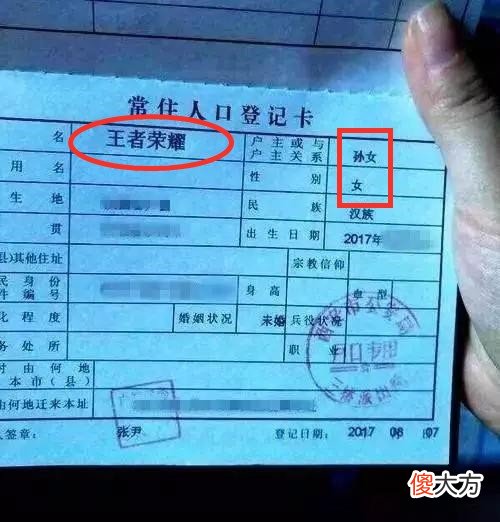 常住人口登记卡
名 王者荣耀 户主或与户主关系 孙女
用名 性别 女
生地 民族 汉族
贯 出生日期 2017年
县)其他住址 宗教信仰
民身份件编号 身高 血型
化程度 婚姻状况 未婚 兵役状况
务处所 职业
时由何地本市(县)
由何地迁来本址
人签章: 张尹 登记日期: 2017 08 07
傻大方